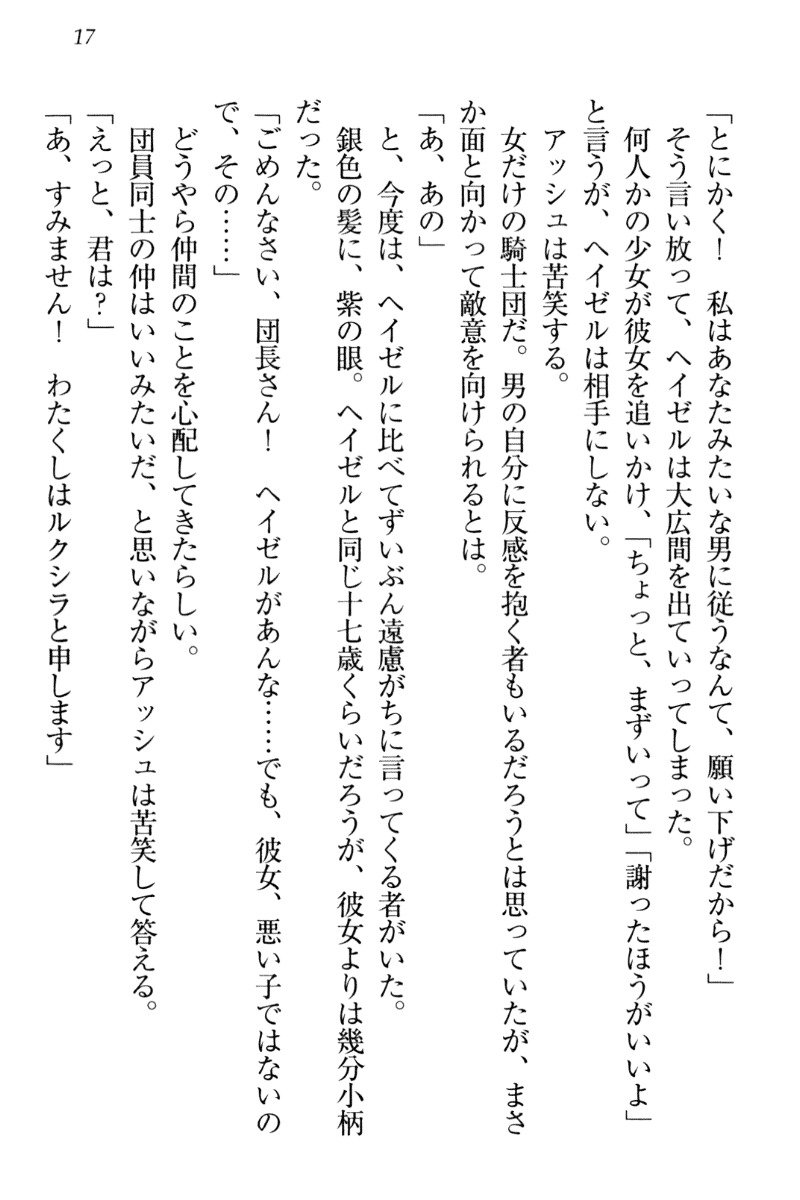 17
「とにかく！　私はあなたみたいな男に従うなんて、願い下げだから！」
そう言い放って、ヘイゼルは大広間を出ていってしまった。
何人かの少女が彼女を追いかけ、「ちょっと、まずいって」「謝ったほうがいいよ」
と言うが、ヘイゼルは相手にしない。
アッシュは苦笑する。
女だけの騎士団だ。男の自分に反感を抱く者もいるだろうとは思っていたが、まさ
か面と向かって敵意を向けられるとは。
「あ、あの」
と、今度は、ヘイゼルに比べてずいぶん遠慮がちに言ってくる者がいた。
銀色の髪に、紫の眼。ヘイゼルと同じ十七歳くらいだろうが、彼女よりは幾分小柄
だった。
「ごめんなさい、団長さん！　ヘイゼルがあんな……でも、彼女、悪い子ではないの
で、その……」
どうやら仲間のことを心配してきたらしい。
団員同士の仲はいいみたいだ、と思いながらアッシュは苦笑して答える。
「えっと、君は？」
「あ、すみません！　わたくしはルクシラと申します」